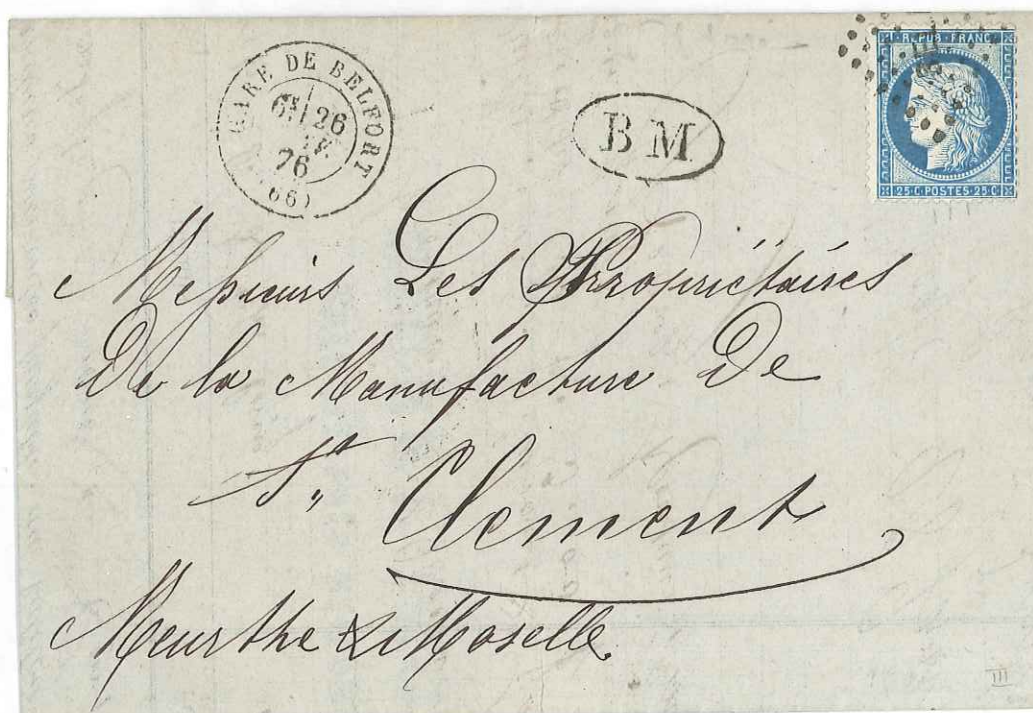 GARE DE BELFORT
6E/ 26
76
(66)
BM
REPUB. FRANC.
25 C. POSTES 25 C.
Messieurs Les Propriëtaires
De la Manufacture De
St. Clement
Meurthe & Moselle
III